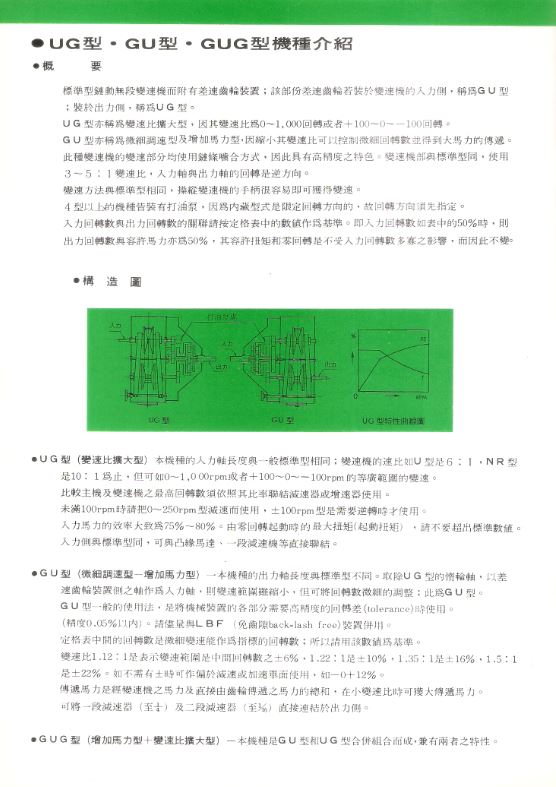 ●UG型・GU型・GUG型機種介紹
●概　　要
標準型鏈動無段變速機而附有差速齒輪裝置；該部份差速齒輪若裝於變速機的入力側，稱爲GU型
；裝於出力側，稱爲UG型。
UG型亦稱爲變速比擴大型，因其變速比爲0～1,000回轉或者＋100～0～－100回轉。
GU型亦稱爲微細調速型及增加馬力型，因縮小其變速比可以控制微細回轉數並得到大馬力的傳遞。
此種變速機的變速部分均使用鏈條嚙合方式，因此具有高精度之特色。變速機部與標準型同，使用
3～5：1變速比，入力軸與出力軸的回轉是逆方向。
變速方法與標準型相同，操縱變速機的手柄很容易即可獲得變速。
4型以上的機種皆裝有打油泵，因爲內藏型式是限定回轉方向的，故回轉方向須先指定。
入力回轉數與出力回轉數的關聯請按定格表中的數値作爲基準。即入力回轉數如表中的50％時，則
出力回轉數與容許馬力亦爲50％，其容許扭矩和零回轉是不受入力回轉數多寡之影響，而因此不變。
●構　造　圖
入力
打油型式
入力
出力
出力
UG型
GU型
％
0
RPM
UG型特性曲線圖
●UG型（變速比擴大型）本機種的入力軸長度與一般標準型相同；變速機的速比如U型是6：1，NR型
是10：1爲止，但可如0～1,000rpm或者＋100～0～－100rpm的等廣範圍的變速。
比較主機及變速機之最高回轉數須依照其比率聯結減速器或增速器使用。
未滿100rpm時請把0～250rpm型減速而使用，±100rpm型是需要逆轉時才使用。
入力馬力的效率大致爲75％～80％。由零回轉起動時的最大扭矩(起動扭矩)，請不要超出標準數値。
入力側與標準型同，可與凸緣馬達、一段減速機等直接聯結。
●GU型（微細調速型－增加馬力型）－本機種的出力軸長度與標準型不同。取除UG型的惰輪軸，以差
速齒輪裝置側之軸作爲入力軸，則變速範圍雖縮小，但可將回轉數微細的調整；此爲GU型。
GU型一般的使用法，是將機械裝置的各部分需要高精度的回轉差(tolerance)時使用。
(精度0.05％以內)。請儘量與LBF（免齒隙back-lash free)裝置併用。
定格表中間的回轉數是微細變速能作爲指標的回轉數；所以請用該數値爲基準。
變速比1.12：1是表示變速範圍是中間回轉數之±6％，1.22：1是±10％，1.35：1是±16％，1.5：1
是±22％。如不需有±時可作偏於減速或加速單面使用，如－0＋12％。
傳遞馬力是經變速機之馬力及直接由齒輪傳遞之馬力的總和，在小變速比時可獲大傳遞馬力。
可將一段減速器（至）及二段減速器（至）直接連結於出力側。
●GUG型（增加馬力型＋變速比擴大型）－本機種是GU型和UG型合併組合而成，兼有兩者之特性。